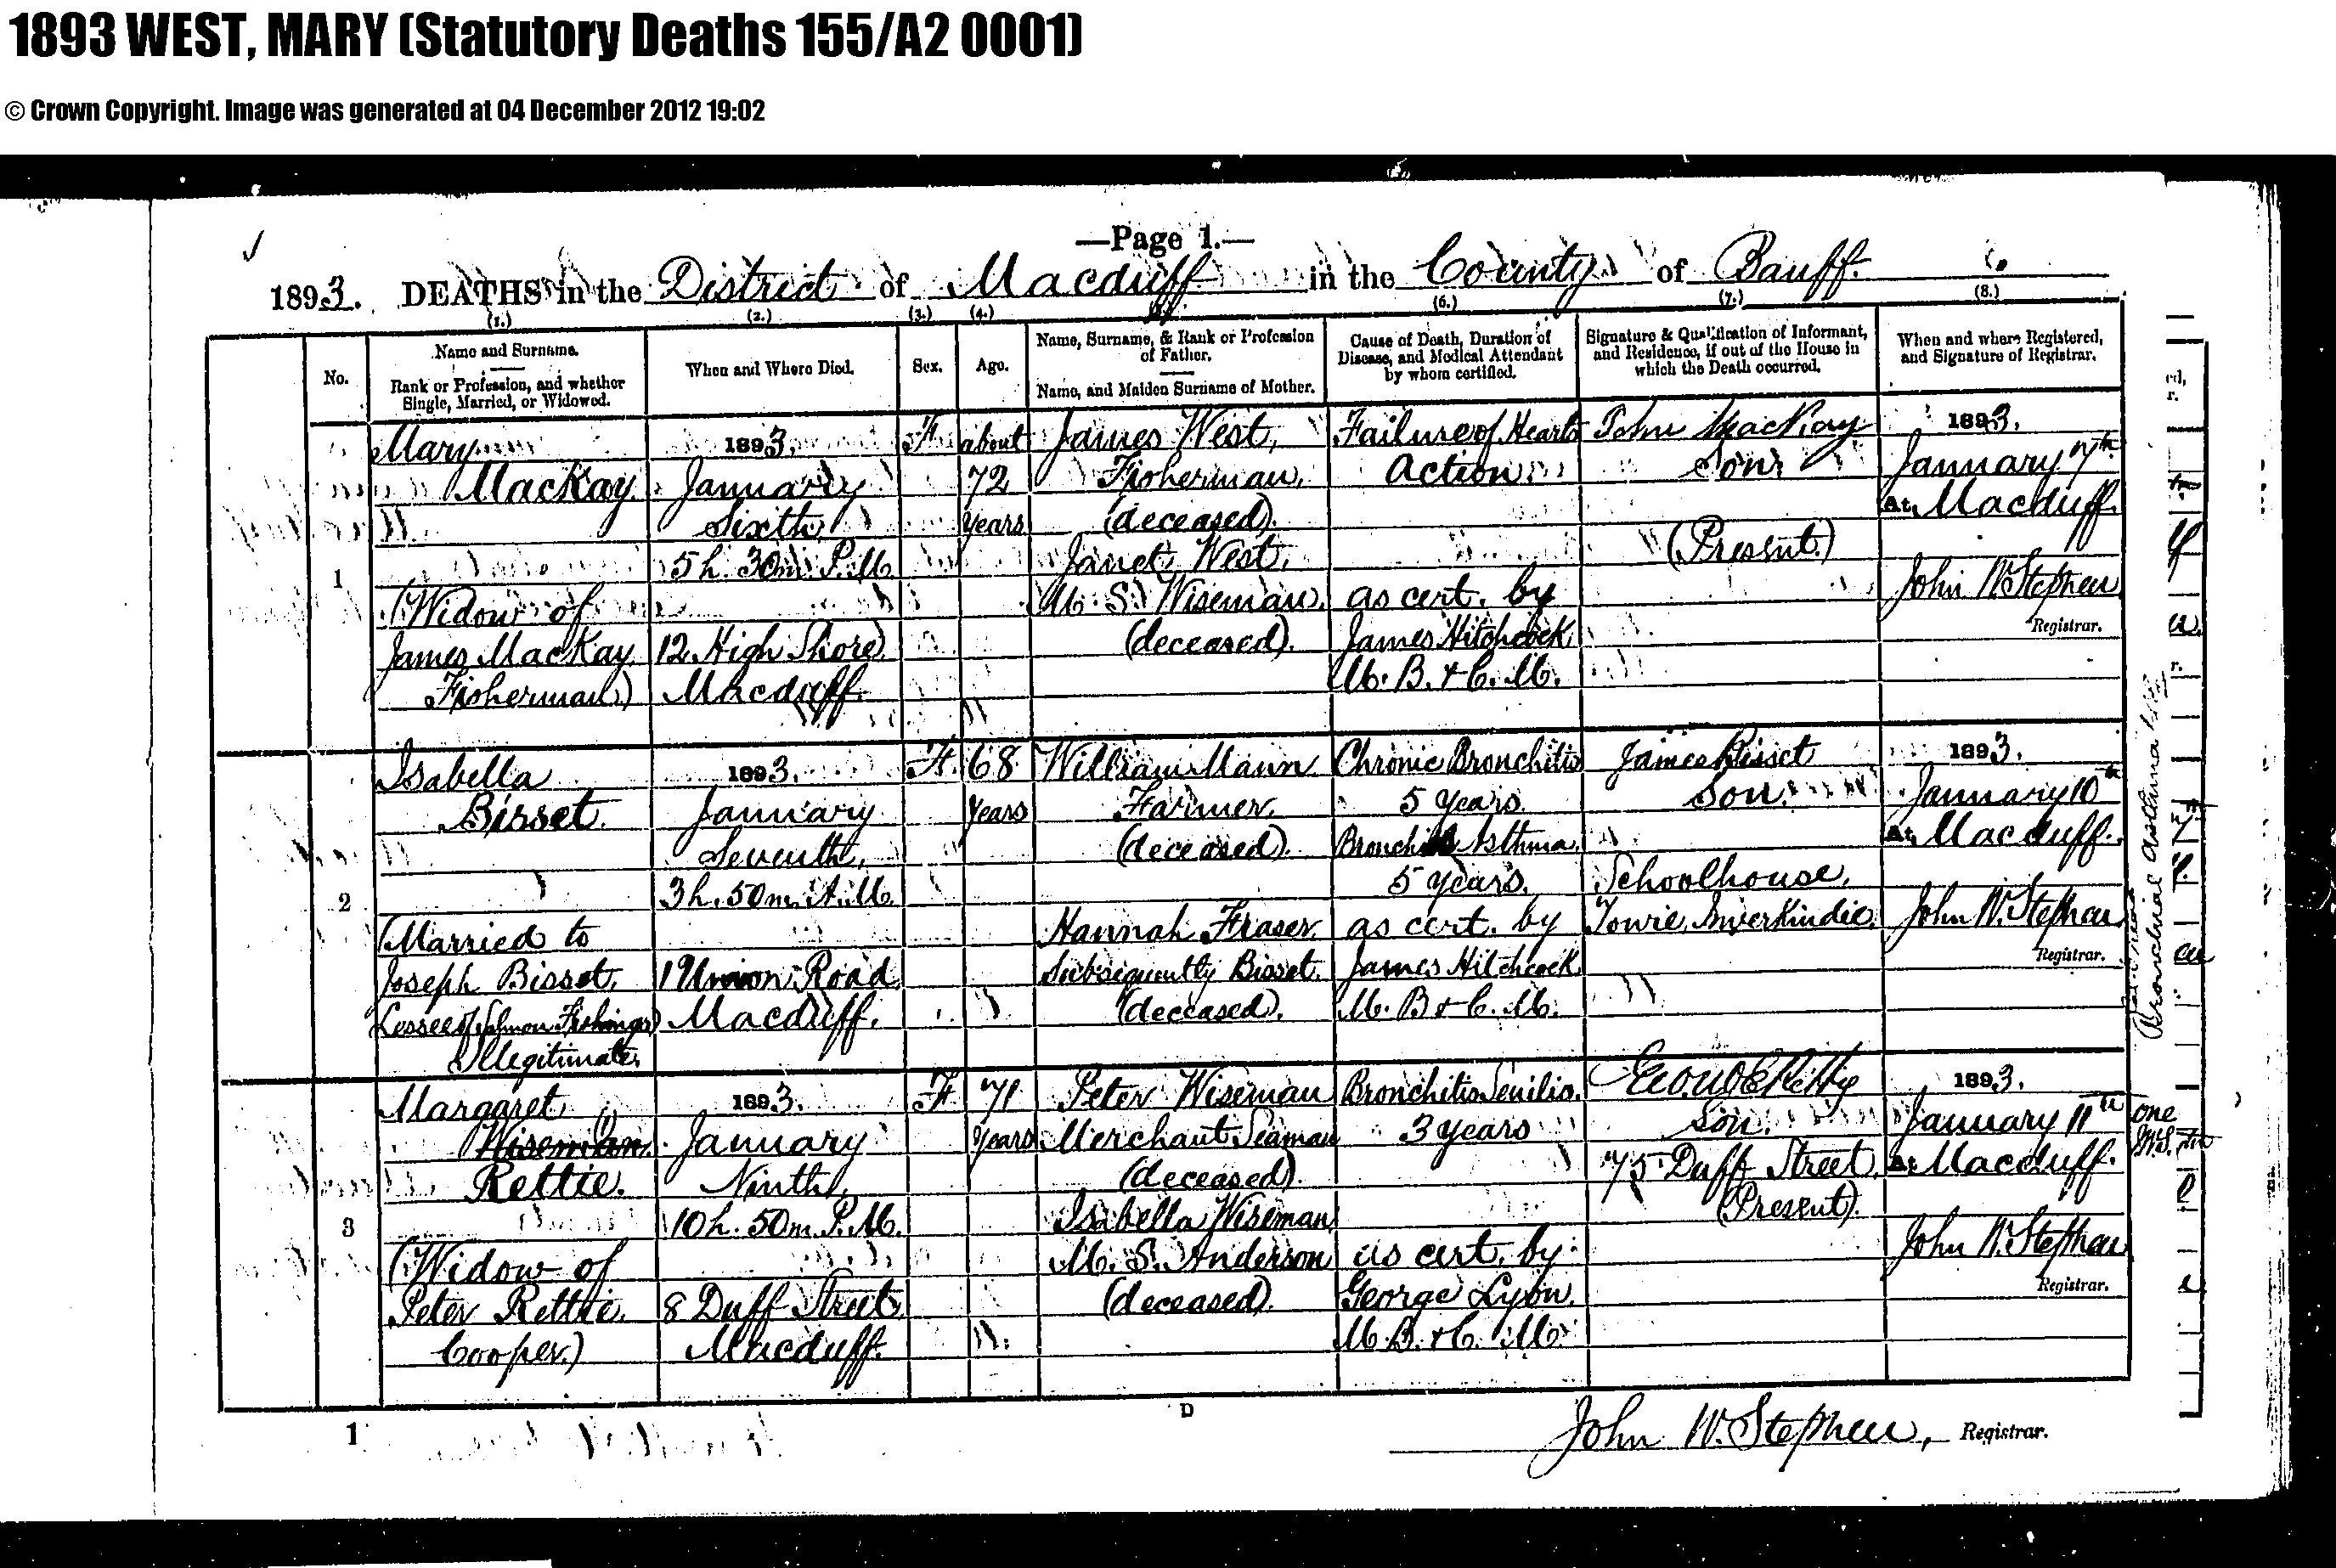 1893 WEST, MARY (Statutory Deaths 155/A2 0001)
© Crown Copyright. Image was generated at 04 December 2012 19:02
—Page 1.—
1893. DEATHS in the District of Macduff in the County of Banff.
(1.) (2.) (3.) (4.) (6.) (7.) (8.)
No.
Name and Surname.
Rank or Profession, and whether
Single, Married, or Widowed.
When and Where Died.
Sex.
Age.
Name, Surname, & Rank or Profession
of Father.
Name, and Maiden Surname of Mother.
Cause of Death, Duration of
Disease, and Medical Attendant
by whom certified.
Signature & Qualification of Informant,
and Residence, if out of the House in
which the Death occurred.
When and where Registered,
and Signature of Registrar.
1
Mary
MacKay
(Widow of
James MacKay
Fisherman)
1893.
January
Sixth
5 h. 30 m. P.M.
12 High Shore
Macduff.
F
about
72
years
James West,
Fisherman,
(deceased).
Janet West,
M. S. Wiseman,
(deceased).
Failure of Hearts
Action.
as cert. by
James Hitchcock
M. B. & C. M.
John MacKay
Son
(Present.)
1893.
January 7th
At Macduff.
John W. Stephen
Registrar.
2
Isabella
Bisset.
(Married to
Joseph Bisset,
Lessee of Salmon Fishings)
Illegitimate.
1893.
January
Seventh,
3 h. 50 m. A.M.
1 Union Road
Macduff.
F.
68
years
William Mann
Farmer.
(deceased).
Hannah Fraser,
Subsequently Bisset.
(deceased).
Chronic Bronchitis
5 years.
Asthma
5 years.
as cert. by
James Hitchcock
M. B & C. M.
James Bisset
Son.
Schoolhouse,
Towie, Inverkindie.
1893.
January 10th
At Macduff.
John W. Stephen
Registrar.
Bronchial Asthma
3
Margaret
Wiseman
Rettie.
(Widow of
Peter Rettie,
Cooper.)
1893.
January
Ninth,
10 h. 50 m. P.M.
8 Duff Street
Macduff.
F
71
years
Peter Wiseman
Merchant Seaman
(deceased).
Isabella Wiseman
M. S. Anderson
(deceased).
Bronchitis Senilis.
3 years
as cert. by
George Lyon.
M. B. & C. M.
Son.
75 Duff Street,
(Present).
1893.
January 11th
At Macduff.
John W. Stephen
Registrar.
one
1
D
John W. Stephen, Registrar.